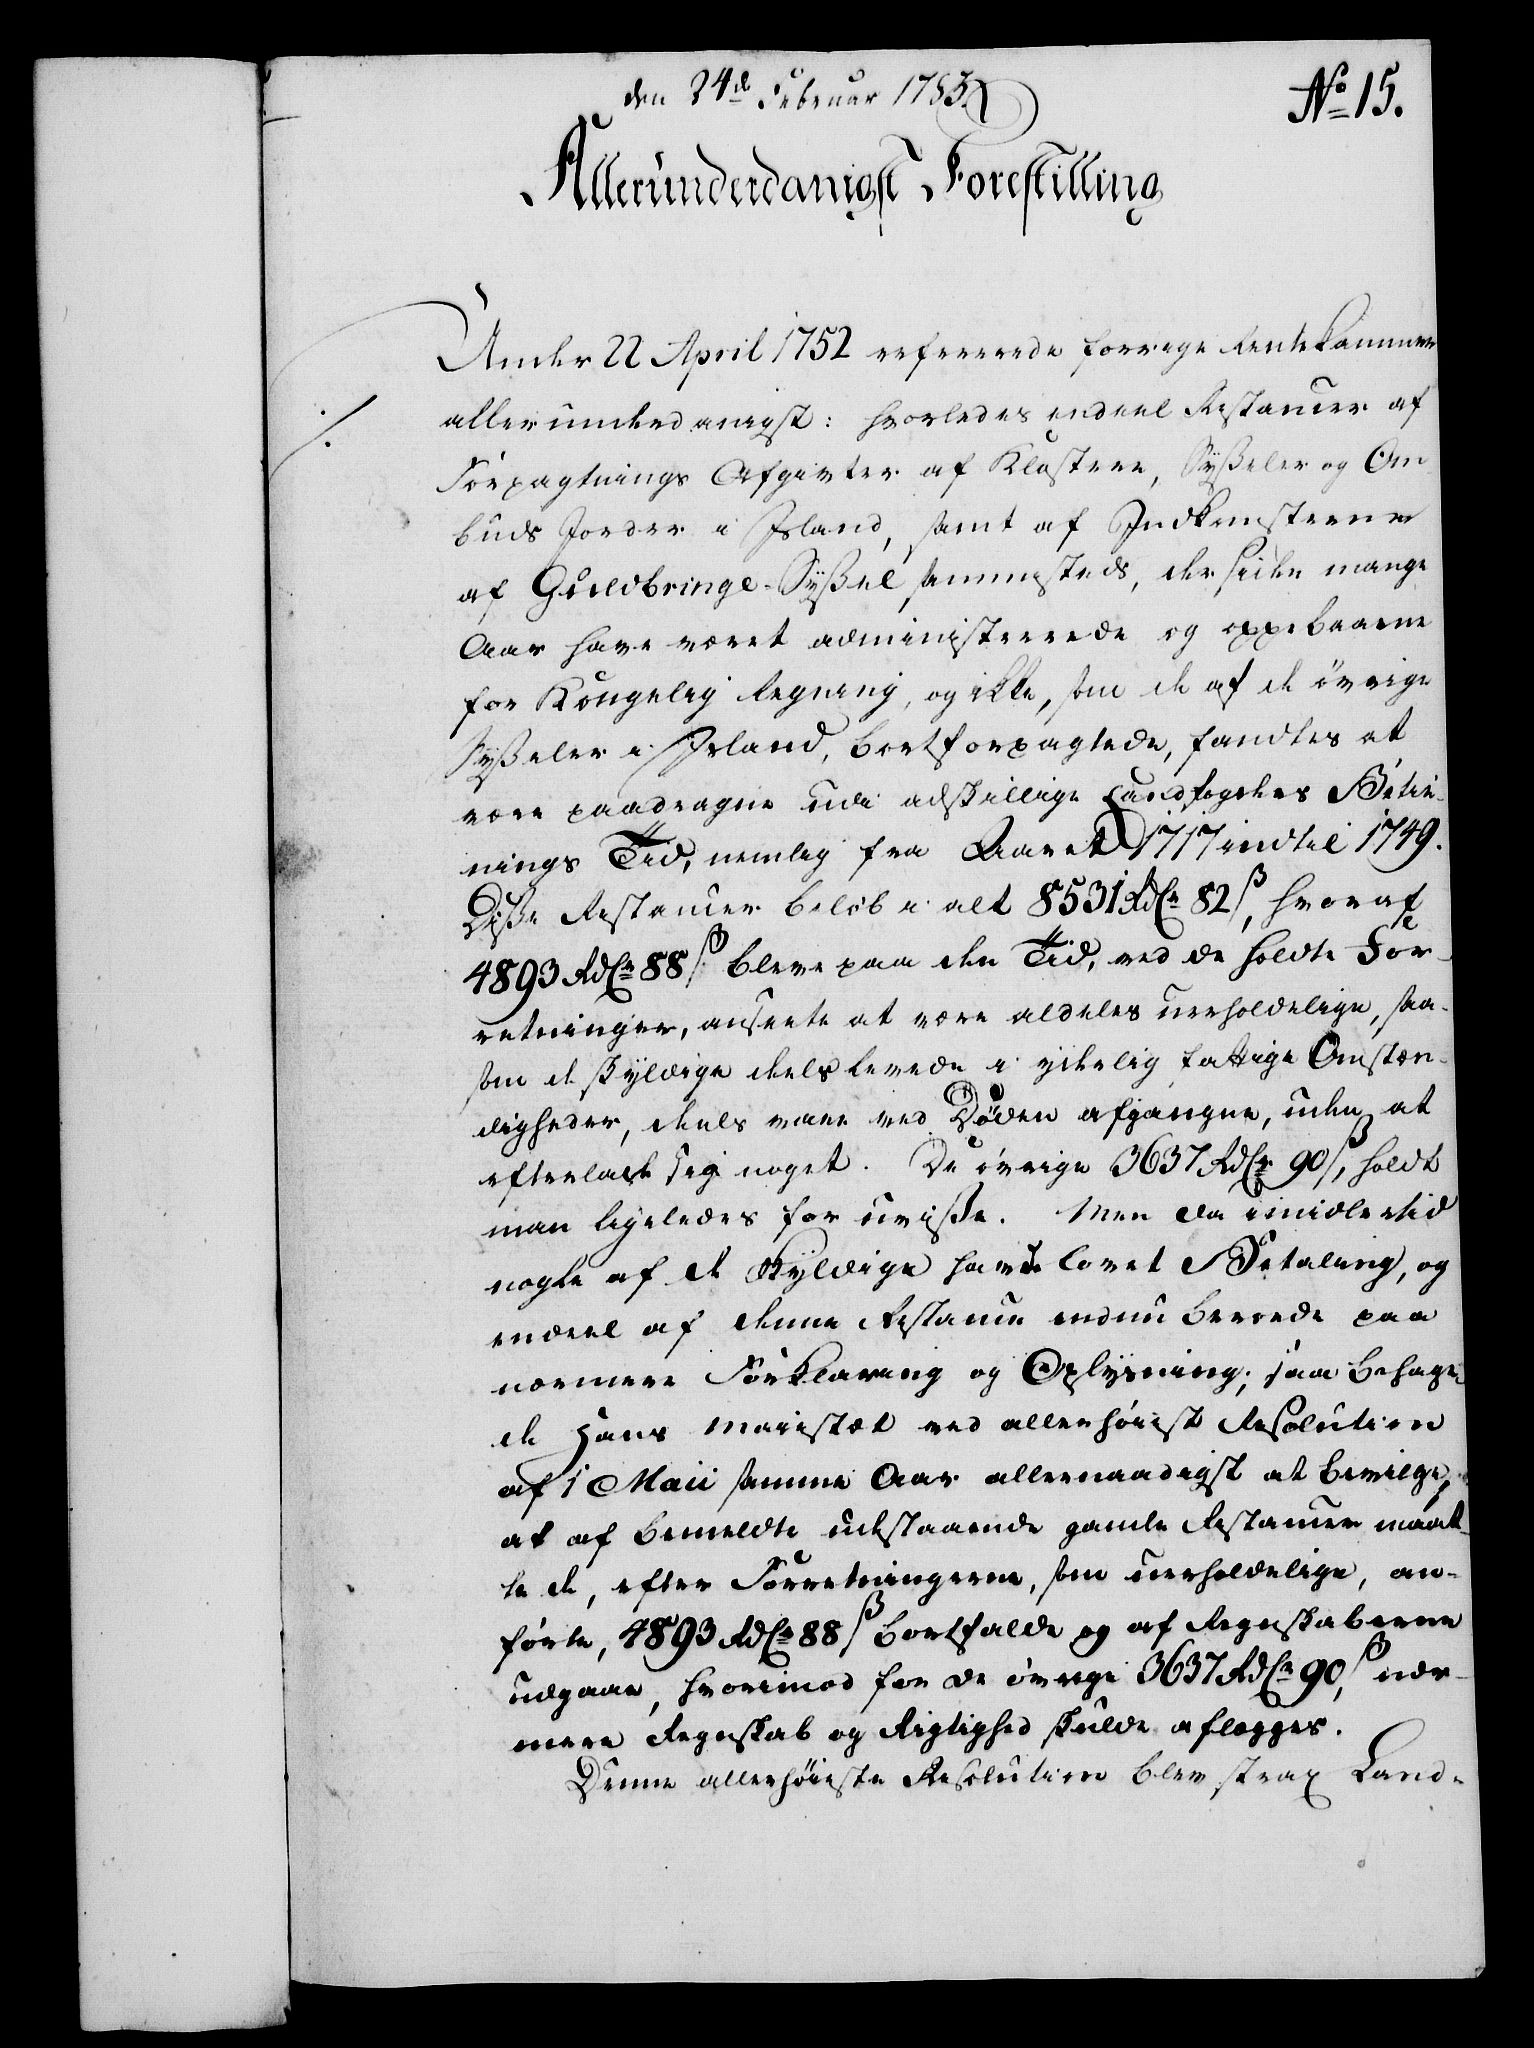 den 24de Februar 1783.
No 15.
Allerunderdanigst Forestilling
Under 22 April 1752 refererede forrige Rentekammer
allerunderdanigst: hvorledes endeel Restancer af
Forpagtnings Afgivter af Klostere, Syßeler og Om
buds Jorder i Island, samt af Indkomsterne
af Guldbringe-Syßel sammesteds, der siden mange
Aar have været administrerede og oppebaarne
for Kongelig Regning, og ikke, som de af de övrige
Syßeler i Island, bortforpagtede, fandtes at
være paadragne udi adskillige Landfogders Betie-
nings Tid, nemlig fra Aaret 1717 indtil 1749.
Diße Restancer belöb i alt 8531 RdCr 82 ß, hvoraf
4893 RdCr 88 ß bleve paa den Tid, ved de holdte For-
retninger, anseete at være aldeles uerholdelige, saa-
som de skyldige deels levede i yderlig fattige Omstæn-
digheder, deels vare ved Döden afgangne, uden at
efterlade sig noget. De övrige 3637 RdCr 90 ß, holdt
man ligeledes for uviße. Men da imidlertid
nogle af de Skyldige havde lovet Betaling, og
endeel af denne Restance endnu beroede paa
nærmere Forklaring og Oplysning; saa behage-
de Hans Maiestæt ved allerhöiest Resolution
af 1 Maii samme Aar allernaadigst at bevilge,
at af bemeldte udestaaende gamle Restancer maat-
te de, efter Forretningerne, som uerholdelige, an-
förte, 4893 RdCr 88 ß bortfalde og af Regnskaberne
udgaae, hvorimod for de övrige 3637 RdCr 90 ß, nær-
mere Regnskab og Rigtighed skulde aflægges.
Denne allerhöieste Resolution blev strax Land-